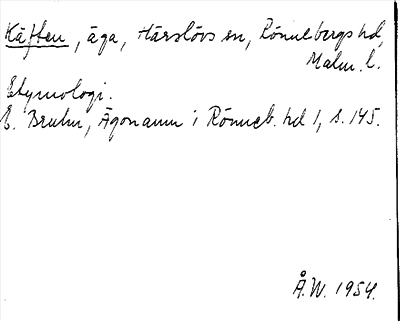 Käften, äga, Härslövs sn, Rönnebergs hd,
Malm. l.
Etymologi.
E. Bruhn, Ägonamn i Rönneb. hd 1, s. 145.
Å.W. 1954.